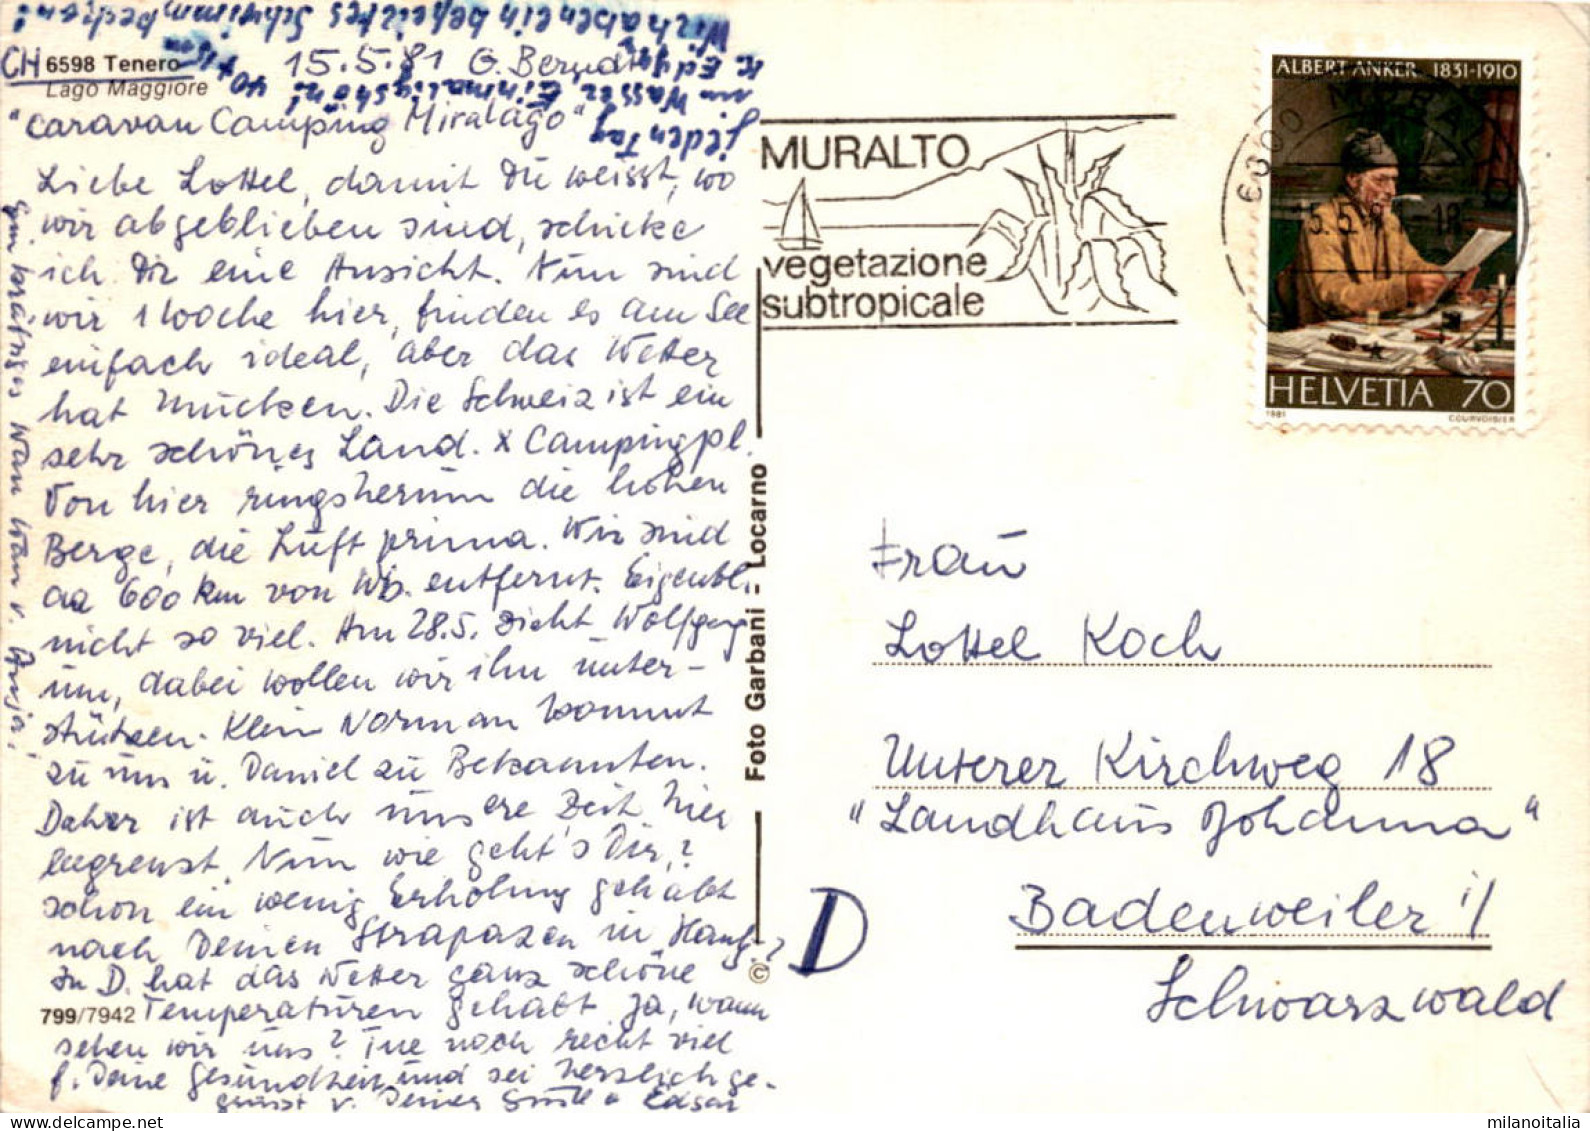 Wir haben ein beheiztes Schwimmbecken!
CH 6598 Tenero
Lago Maggiore
15.5.81 G. Berndt
im Wasser Einmalig schön!
jeden Tag
"Caravan Camping Miralago"
Liebe Lottel, damit Du weisst, wo
wir abgeblieben sind, schicke
ich Dir eine Ansicht. Nun sind
wir 1 Woche hier, finden es am See
einfach ideal, aber das Wetter
hat Mucken. Die Schweiz ist ein
sehr schönes Land. x Campingpl.
Von hier ringsherum die hohen
Berge, die Luft prima. Wir sind
ca 600 km von Wb. entfernt. Eigentl.
nicht so viel. Am 28.5. zieht Wolfgang
um, dabei wollen wir ihn unter-
stützen. Klein Norman kommt
zu uns u. Daniel zu Bekannten.
Daher ist auch unsere Zeit hier
begrenzt. Nun wie geht's Dir?
schon ein wenig Erholung gehabt
nach Deinen Strapazen in Hamb.?
In D. hat das Wetter ganz schöne
Temperaturen gehabt. Ja, wann
sehen wir uns? Tue noch recht viel
f. Deine Gesundheit und sei herzlich ge-
grüsst v. Deiner u. Edgar
799/7942
Foto Garbani - Locarno
©
MURALTO
vegetazione
subtropicale
6600 MURALTO
15.5.81-18
ALBERT ANKER 1831-1910
HELVETIA 70
1981 COURVOISIER
Frau
Lottel Koch
Unterer Kirchweg 18
"Landhaus Johanna"
D
Badenweiler i/
Schwarzwald
milanoitalia